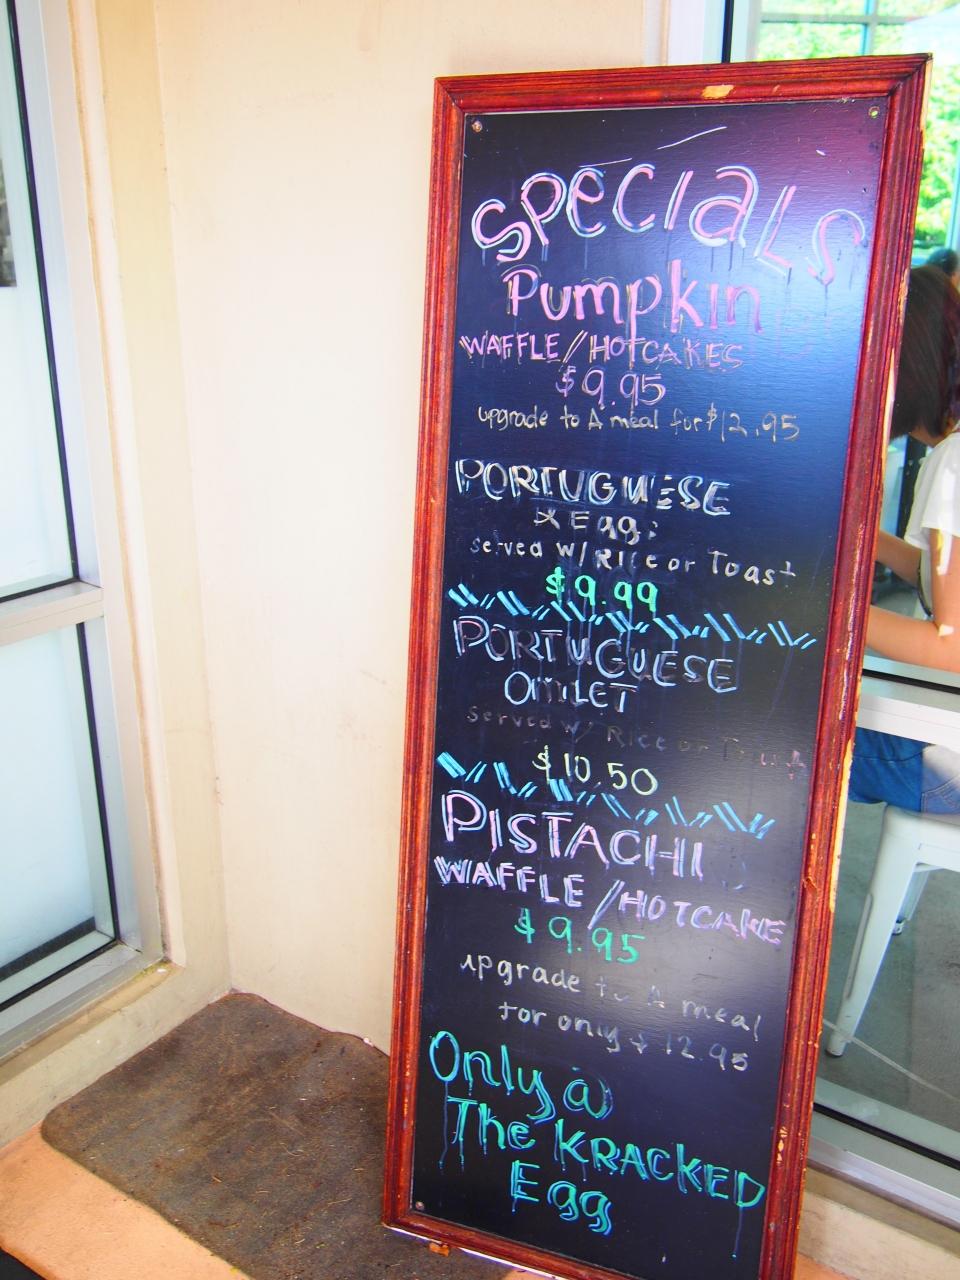 SPECIALS
Pumpkin
WAFFLE/HOTCAKES
$9.95
upgrade to A meal for $12.95
PORTUGUESE
& Egg:
served w/ Rice or Toast
$9.99
PORTUGUESE
OMLET
served w/ Rice or Toast
$10.50
PISTACHI
WAFFLE/HOTCAKE
$9.95
upgrade to A meal
for only $12.95
Only @
The KRACKED
Egg